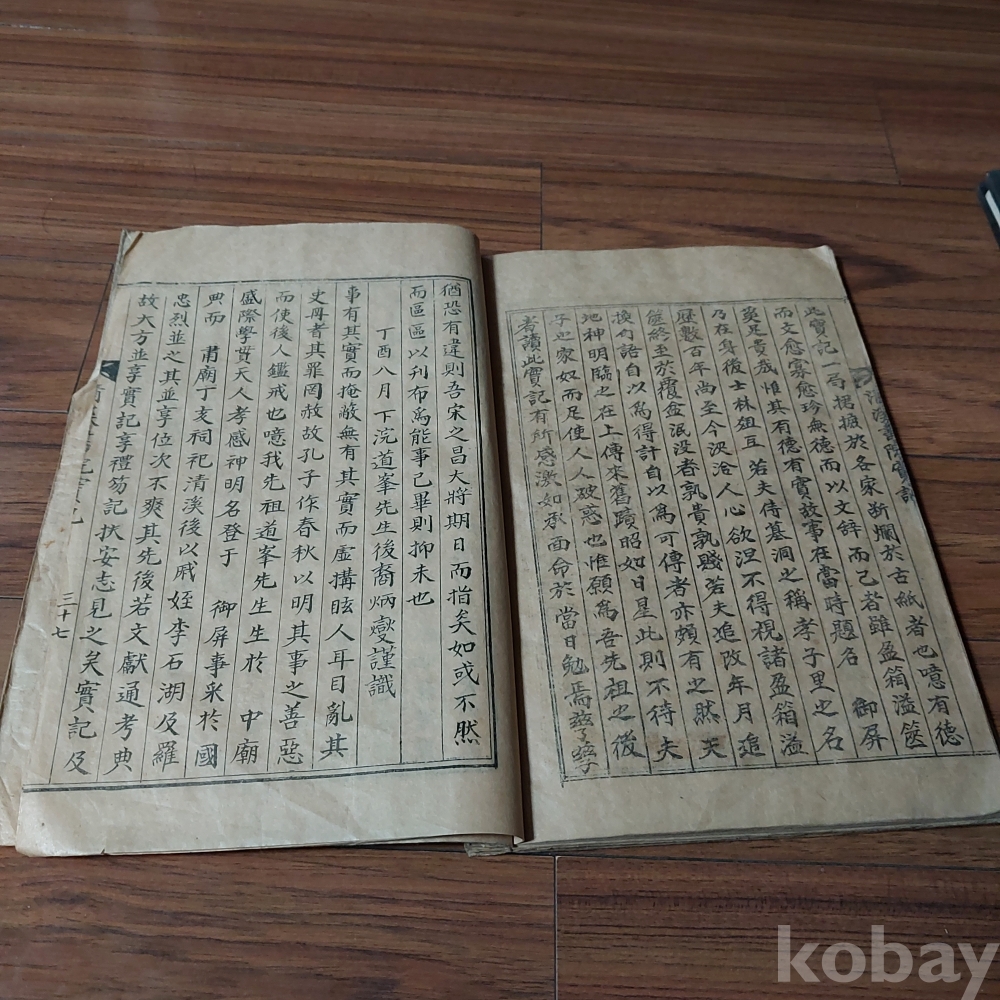 此實記一局捃摭於各家斷爛於古紙者也噫有德
而文愈寡愈珍無德而以文辞而已者雖盈箱溢篋
奚足貴哉惟其有德有實故事在當時題名 御屏
乃在身後士林俎豆 若夫侍墓洞之稱孝子里之名
歷數百年尚至今浹洽人心欲涅不得視諸盈箱溢
篋終至於覆瓿泯没者孰貴孰賤若夫追改年月追
換句語自以爲得計自以爲可傳者亦頗有之然 天
地神明臨之在上傳來舊蹟昭如日星此則不待夫
子之家奴而足使人人破惑也惟願爲吾先祖之後
者讀此實記有所感激如承面命於 當日勉焉
猶恐有違則吾宋之昌大將期日而指矣如或不然
而區區以刋布爲能事已畢則抑未也
丁酉八月下浣道峯先生後裔炳燮謹識
事有其實而掩蔽無有其實而虛搆眩人耳目亂其
史冊者其罪罔赦故孔子作春秋以明其事之善惡
而使後人鑑戒也噫我先祖道峯先生生於 中廟
盛際學貫天人孝感神明名登于 御屏事釆於國
典而 肅廟丁亥祠祀清溪後以戚姪李石湖及羅
忠烈並之其並享位次不爽其先後若文獻通考典
故大方並享實記享禮笏記扶安志見之矣實記及
三十七